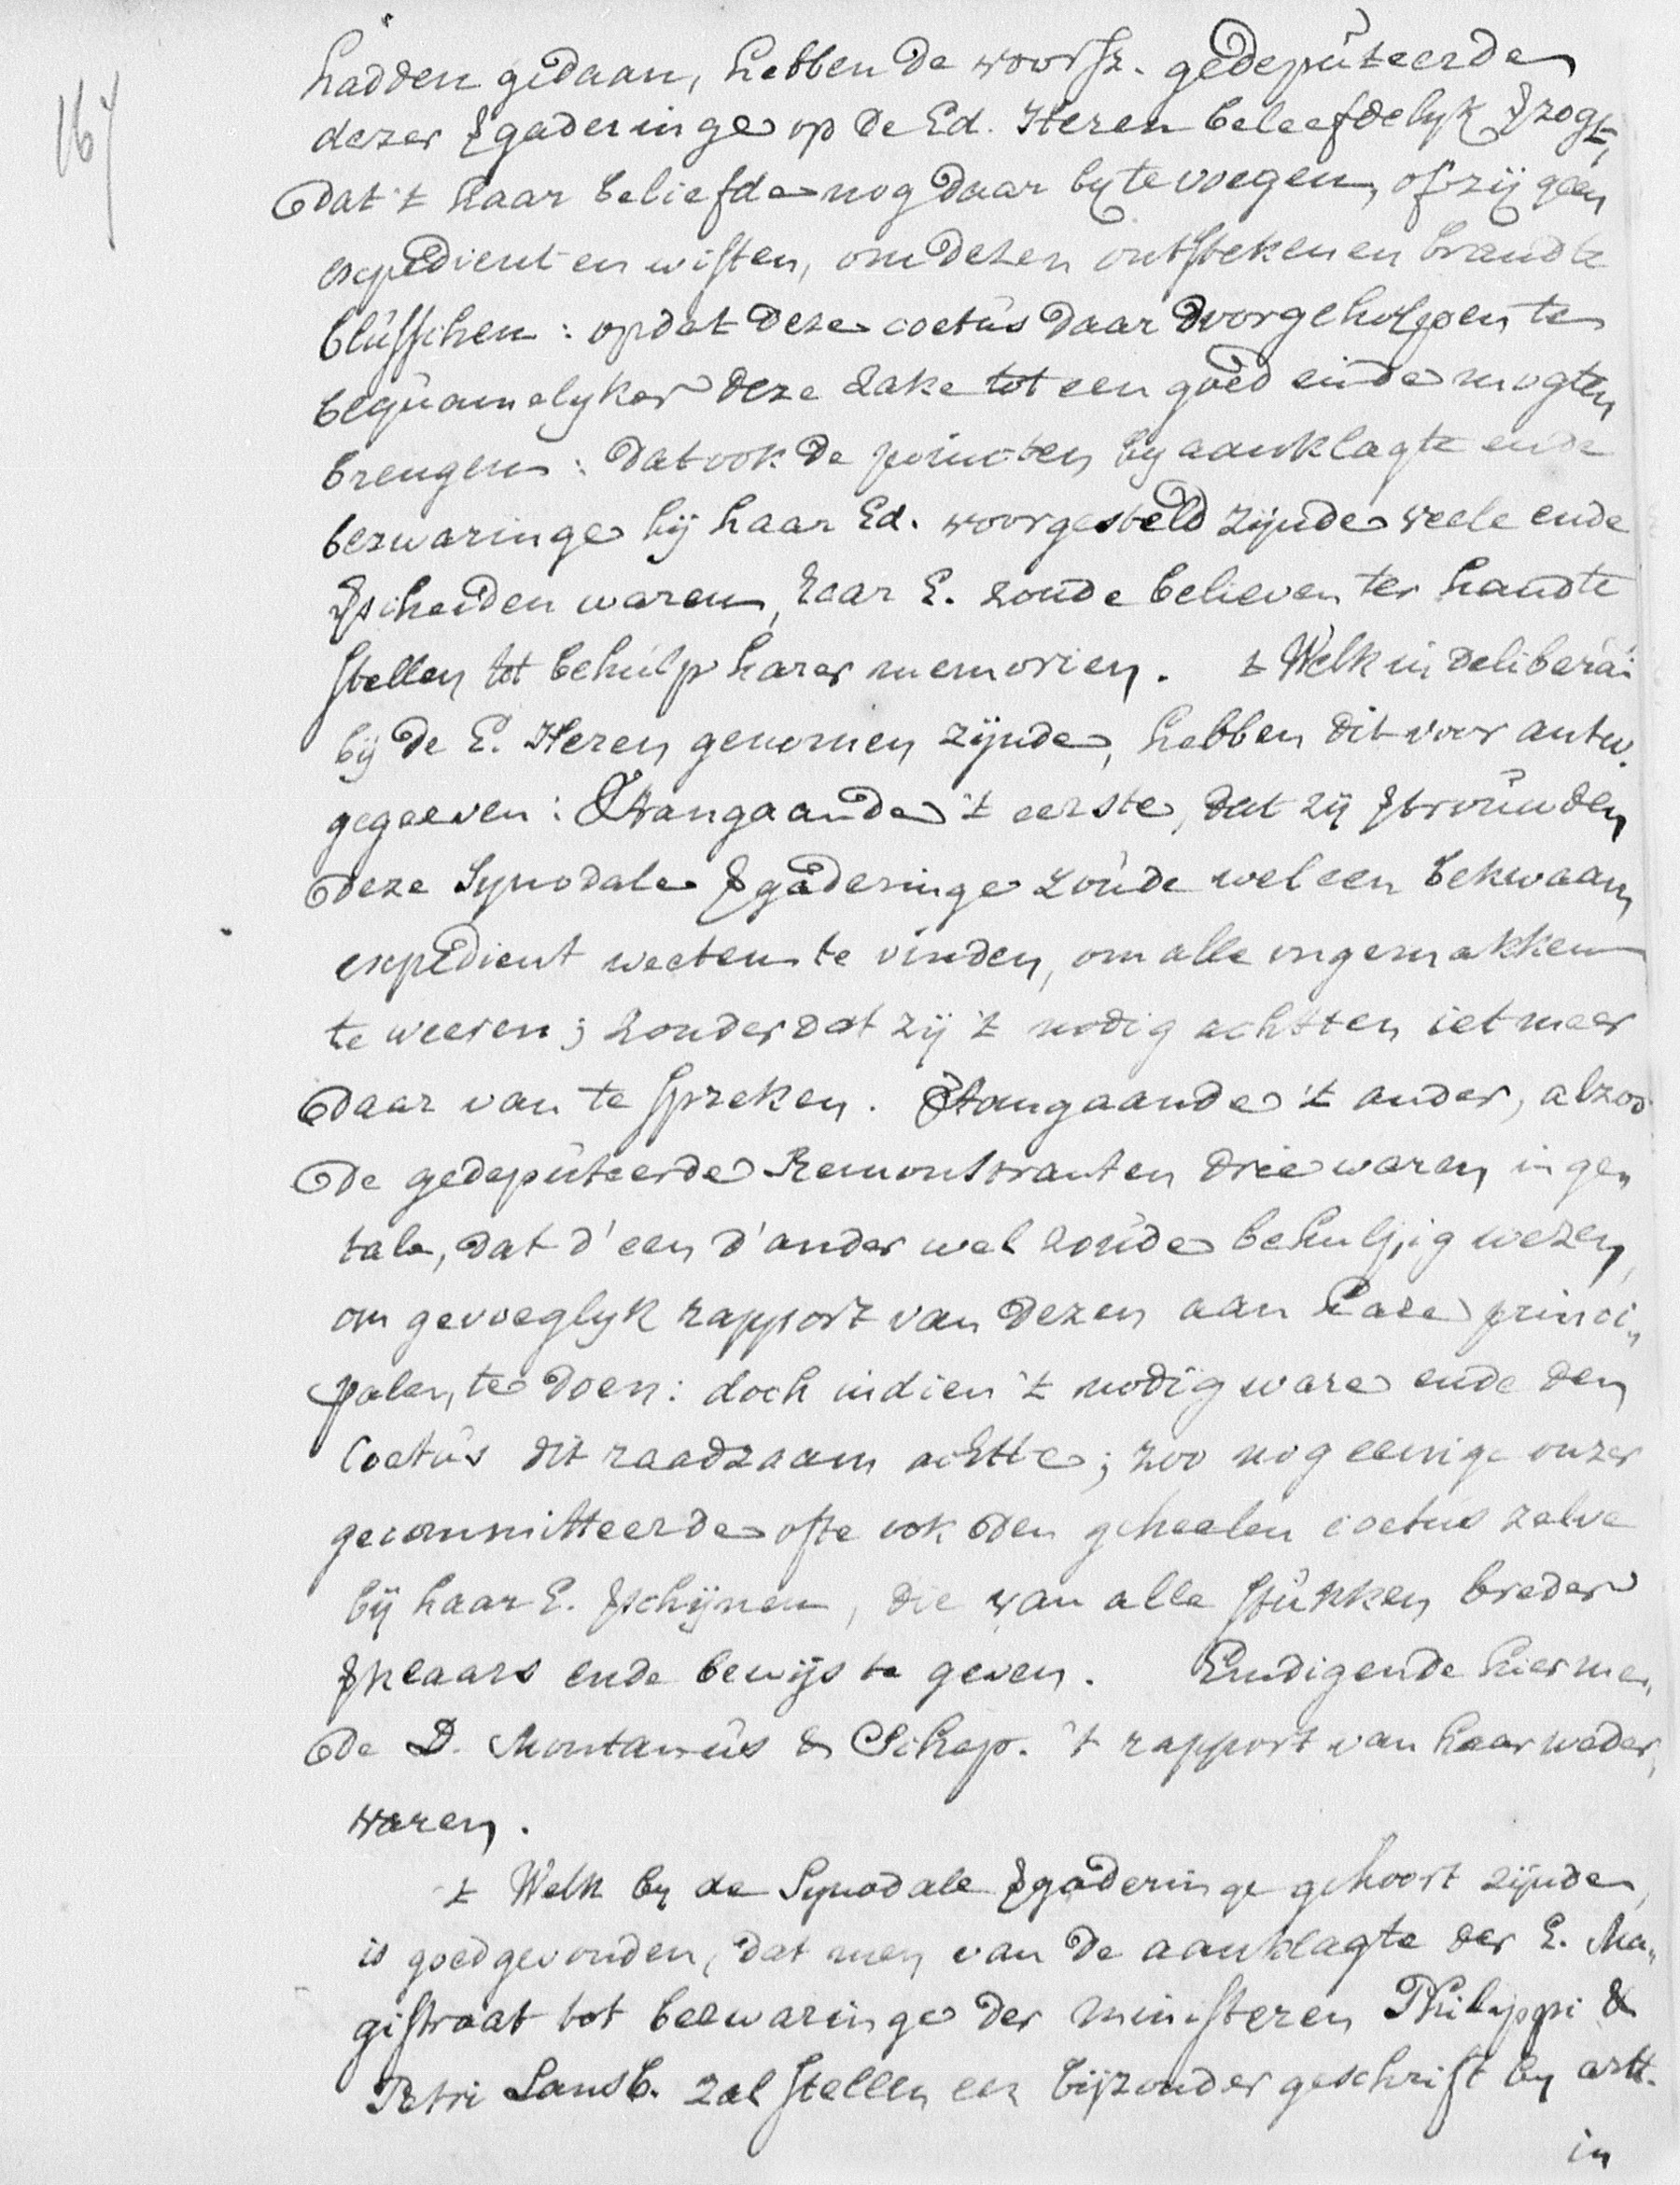 167
hadden gedaan, hebben de voorsz. gedeputeerde
dezer Vgaderinge op de Ed. Heren beleefdelyk Vzogt,
dat 't haar beliefde nog daar by te voegen, of zij geen
expedienten wisten, om dezen ontstekenen brand te
blusschen: opdat deze coetus daar door geholpen te
bequamelyker deze zake tot een goed einde mogten
brengen: dat ook de pointen by aanklagte ende
bezwaringe bij haar Ed. voorgesteld zijnde veele ende
Vscheiden waren, haar E. zoude believen ter hand te
stellen tot behulp harer memorien. 't Welk in delibera:
bij de E. Heren genomen zijnde, hebben dit voor antw.
gegeeven: Aangaande 't eerste, dat zij Vtrouwden
deze Synodale Vgaderinge zoude wel een bekwaam
expedient weeten te vinden, om alle ongemakken
te weeren; zonder dat zij 't nodig achtten iet meer
daar van te spreken. Aangaande 't ander, alzoo
de gedeputeerde Remonstranten drie waren in ge„
tale, dat d'een d'ander wel zoude behulpig wezen,
om gevoeglyk rapport van dezen aan hare princi„
palen, te doen: doch indien 't nodig ware ende den
Coetus dit raadzaam achtte; zoo nog eenige onzer
gecommitteerde ofte ook den geheelen coetus zelve
bij haar E. Vschijnen, die van alle stukken breder
Vklaars ende bewijs te geven. Eindigende hierme„
de D. Montanus & Schep. 't rapport van haar weder„
varen.
't Welk by de Synodale Vgaderinge gehoort zijnde,
is goedgevonden, dat men van de aanklagte der E. Ma„
gistraat tot bezwaringe der ministeren Philippi &
Petri Lansb. zal stellen een bijzonder geschrift by artt.
in